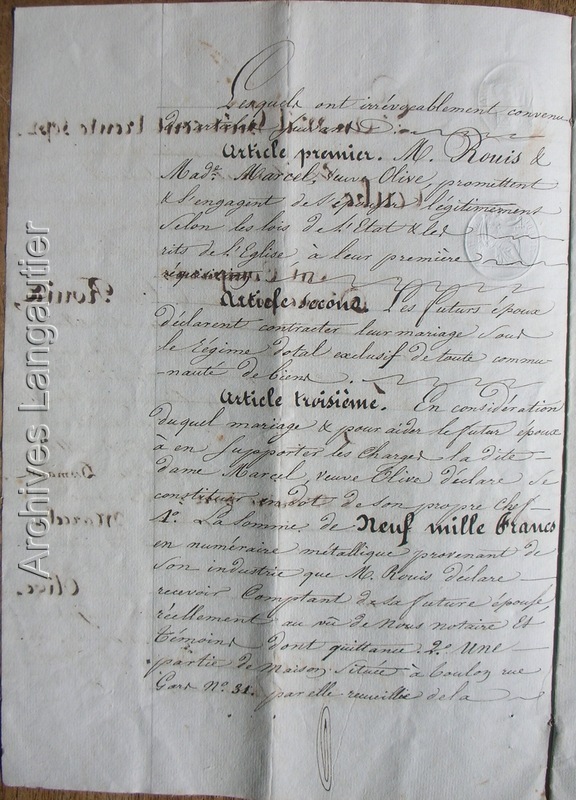 Lesquels ont irrévocablement convenu
d'articles suivants :
Article premier. M. Rouis &
Made. Marcel, veuve Olive, promettent
& s'engagent de s'épouser légitimement
Selon les lois de l'Etat & les
rits de l'Eglise, à leur première
réquisition.
Article second. Les futurs époux
déclarent contracter leur mariage sous
le Régime dotal exclusif de toute commu
nauté de biens.
Article troisième. En considération
duquel mariage & pour aider le futur époux
à en supporter les charges la dite
dame Marcel, veuve Olive déclare se
constituer en dot de son propre chef
1º. La Somme de Neuf mille francs
en numéraire métallique provenant de
Son industrie que M. Rouis déclare
recevoir Comptant de sa future épouse
réellement au vû de Nous notaire et
témoins dont quittance. 2º. Une
partie de maison, située à Toulon rue
Gars Nº. 31. par elle recueillie de la
Archives Langautier